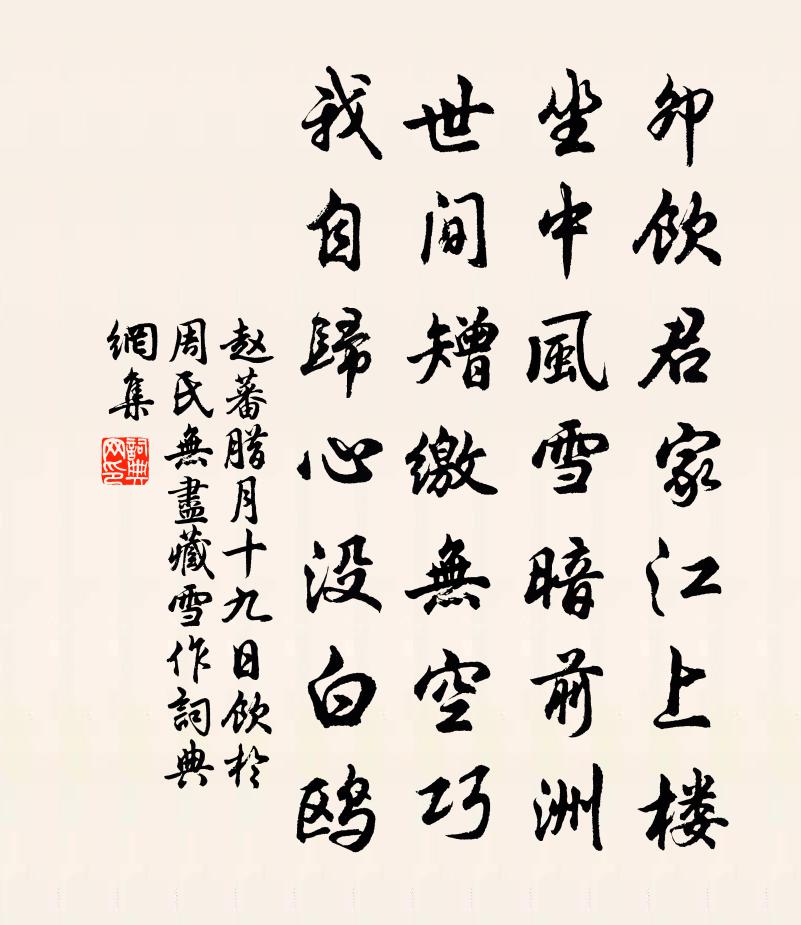 卯饮君家江上楼
坐中風雪暗前洲
世间矰缴無空巧
我自歸心没白鸥
赵蕃腊月十九日饮於
周氏無盡藏雪作詞典
網集
詞典
网印